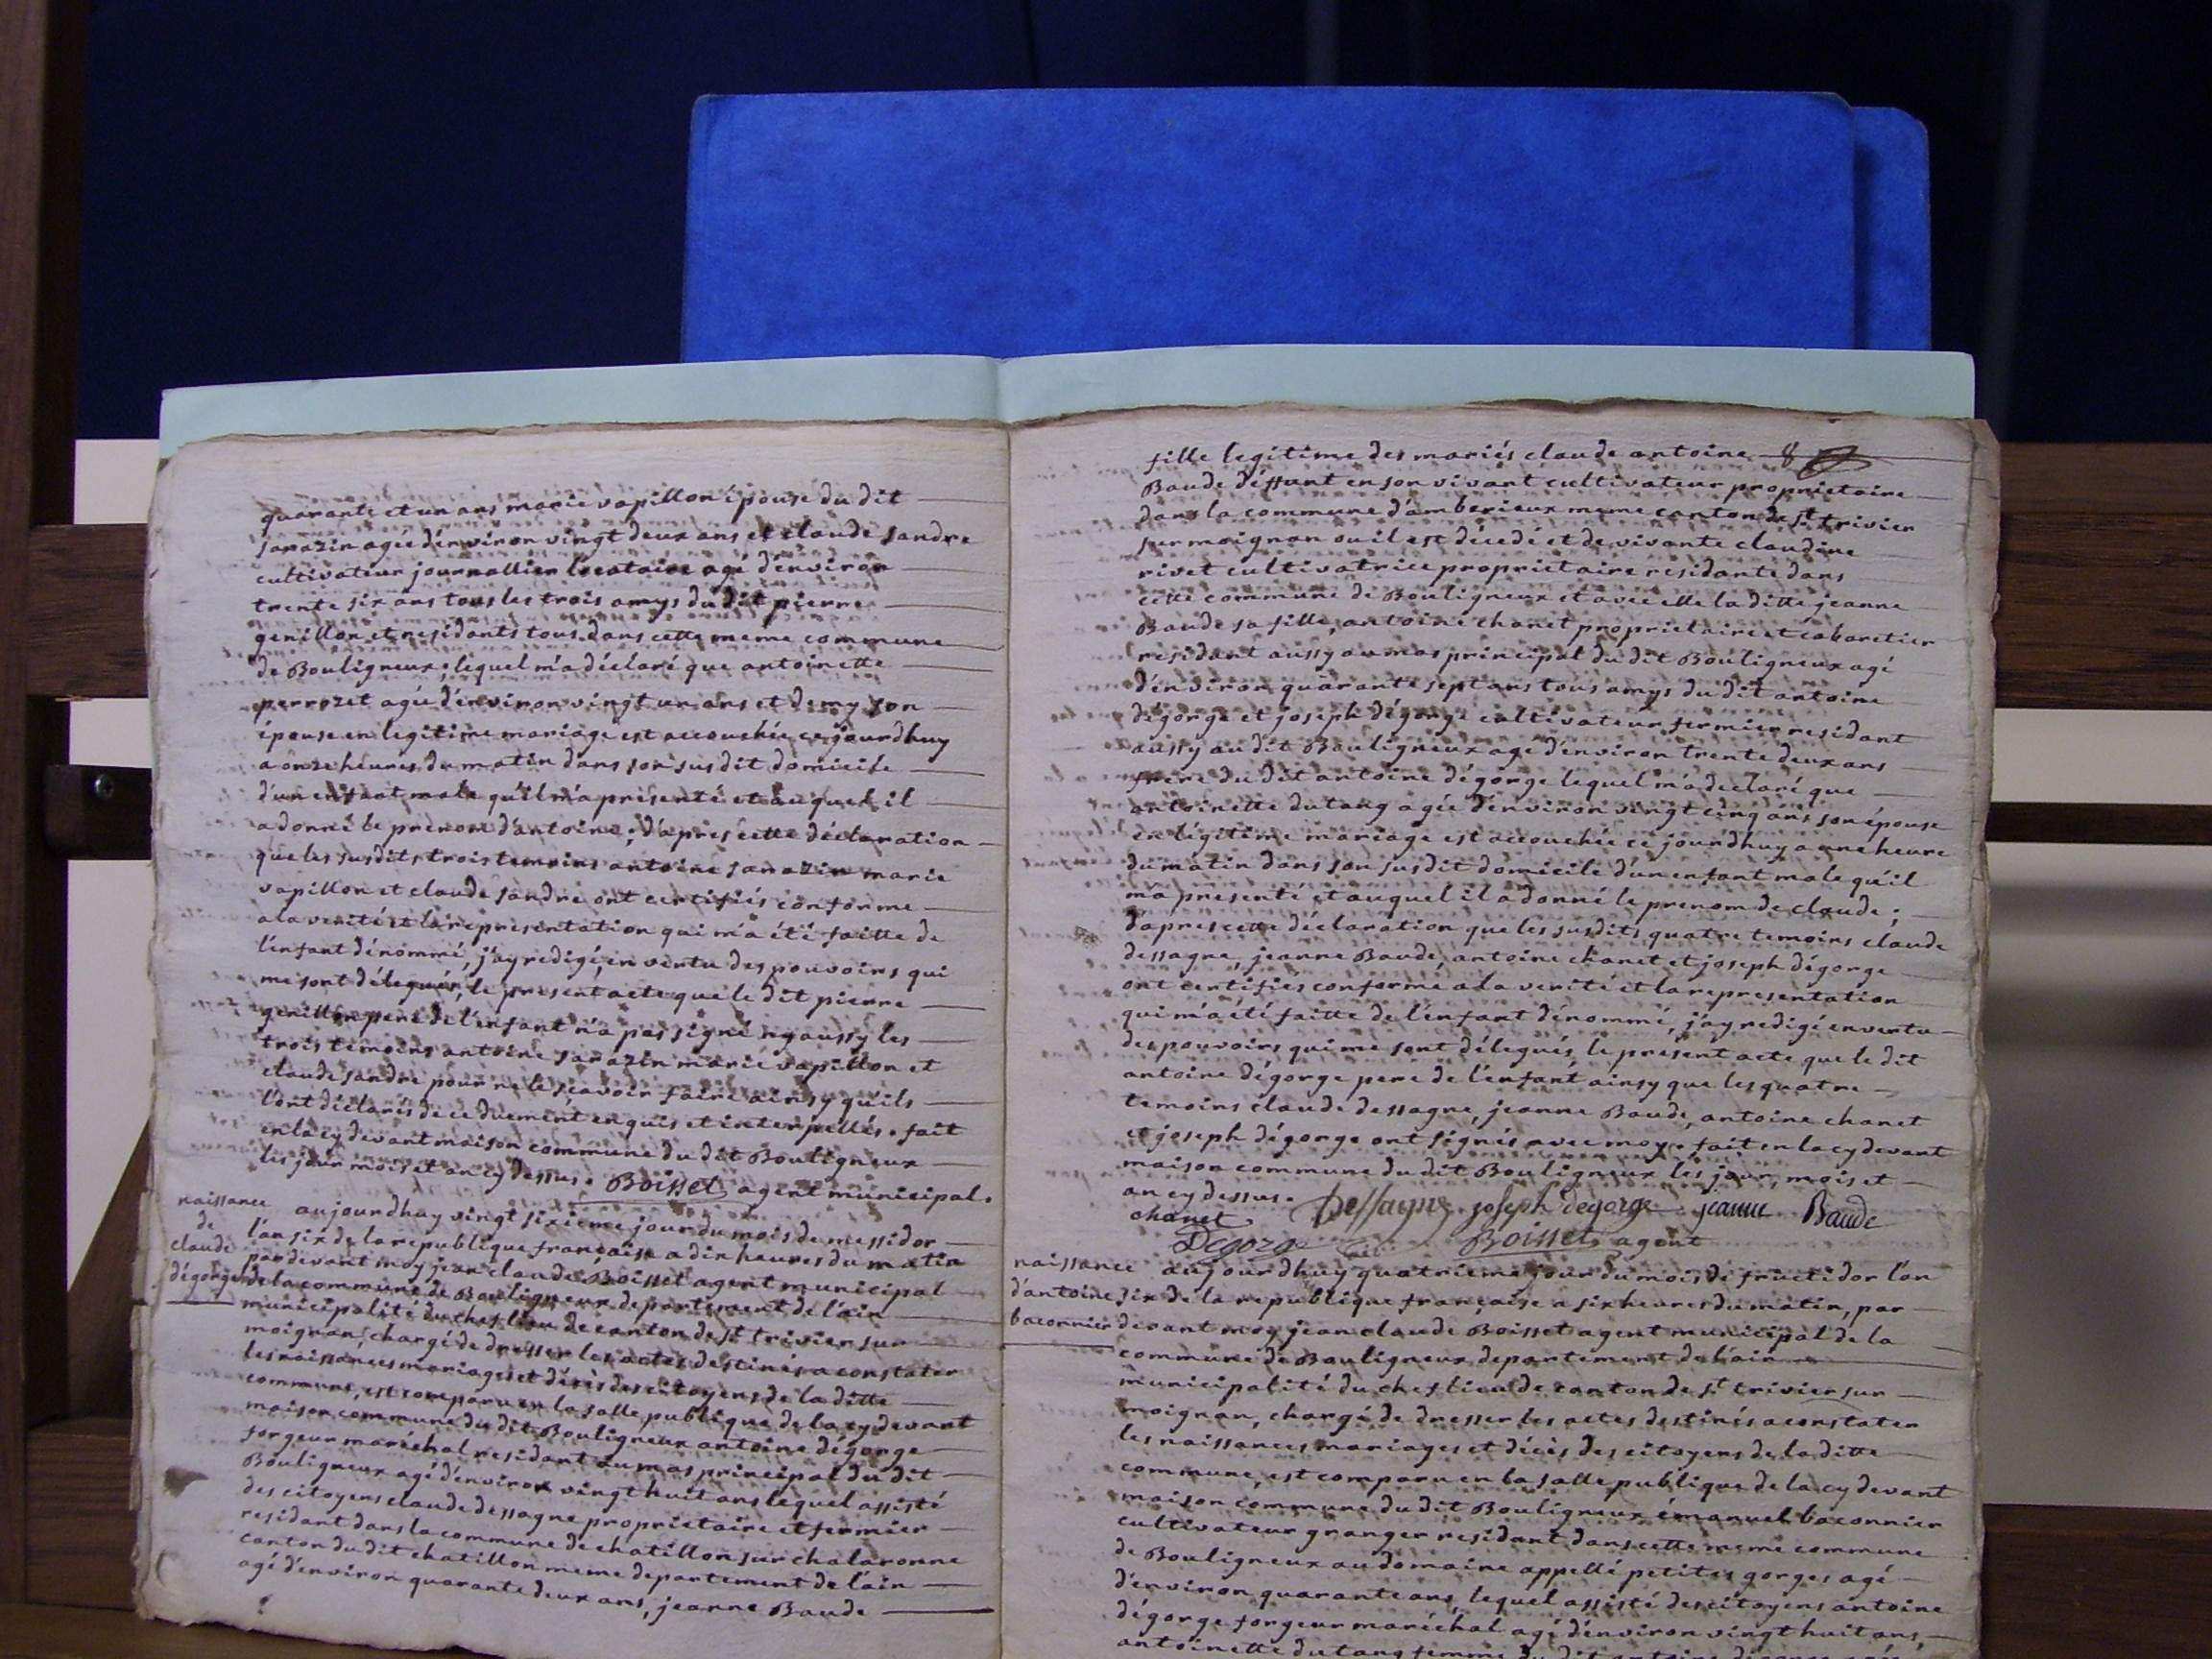 quarante et un ans marie vapillon épouse du dit
sarazin agée d'environ vingt deux ans et claude sandre
cultivateur journallier locataire agé d'environ
trente six ans tous les trois amys du dit pierre
genillon et residants tous dans cette meme commune
de Bouligneux, lequel m'a déclaré que antoinette
perrozet agée d'environ vingt un ans et demy son
épouse en legitime mariage est accouchée cejourdhuy
a onze heures du matin dans son susdit domicile
d'un enfant male qu'il m'a présenté et auquel il
a donné le prenom d'antoine; d'apres cette déclaration
que les susdits trois temoins antoine sarazin marie
vapillon et claude sandre ont certifiés conforme
a la verité et la representation qui m'a été faitte de
l'enfant dénommé, j'ay redigé, en vertu des pouvoirs qui
me sont délegués, le present acte que le dit pierre
genillon pere de l'enfant n'a pas signé ny aussy les
trois témoins antoine sarazin marie vapillon et
claude sandre pour ne le sçavoir faire ainsy qu'ils
l'ont déclarés de ce duement enquis et interpellés. fait
en la cy devant maison commune du dit Bouligneux
les jour mois et an cy dessus. Boisset agent municipal.
naissance
de
claude
dégorge
aujourdhuy vingt sixieme jour du mois de messidor
l'an six de la republique française a dix heures du matin
pardevant moy jean claude Boisset agent municipal
de la commune de Bouligneux departement de l'ain
municipalité du chef lieu de canton de st trivier sur
moignan, chargé de dresser les actes destinés a constater
les naissances mariages et décès des citoyens de la ditte
commune, est comparu en la salle publique de la cy devant
maison commune du dit Bouligneux antoine dégorge
forgeur maréchal residant au mas principal du dit
Bouligneux agé d'environ vingt huit ans lequel assisté
des citoyens claude dessagne proprietaire et fermier
residant dans la commune de chatillon sur chalaronne
canton du dit chatillon meme departement de l'ain
agé d'environ quarante deux ans, jeanne Baude
fille legitime des mariés claude antoine 8
Baude déffunt en son vivant cultivateur proprietaire
dans la commune d'amberieux meme canton de st trivier
sur moignan ou il est décedé et de vivante claudine
rivet cultivatrice proprietaire residante dans
cette commune de Bouligneux et avec elle la ditte jeanne
Baude sa fille, antoine chanet proprietaire et cabaretier
residant aussy au mas principal du dit Bouligneux agé
d'environ quarante sept ans tous amys du dit antoine
dégorge et joseph dégorge cultivateur fermier residant
aussy au dit Bouligneux agé d'environ trente deux ans
frere du dit antoine dégorge lequel m'a declaré que
antoinette dutang agée d'environ vingt cinq ans son épouse
en légitime mariage est accouchée ce jourdhuy a une heure
du matin dans son susdit domicile d'un enfant male qu'il
m'a presenté et auquel il a donné le prenom de claude;
d'apres cette déclaration que les susdits quatre temoins claude
dessagne, jeanne Baude, antoine chanet et joseph dégorge
ont certifiés conforme a la verité et la representation
qui m'a été faitte de l'enfant dénommé, j'ay redigé en vertu
des pouvoirs qui me sont délegués, le present acte que le dit
antoine dégorge pere de l'enfant ainsy que les quatre
temoins claude dessagne, jeanne Baude, antoine chanet
et joseph dégorge ont signés avec moy. fait en la cy devant
maison commune du dit Bouligneux les jour, mois et
an cy dessus. Dessagne joseph degorge jeanne Baude
chanet
Degorge Boisset agent
naissance
d'antoine
baconnier
aujourdhuy quatrieme jour du mois de fructidor l'an
six de la republique française a six heures du matin, par
devant moy jean claude Boisset agent municipal de la
commune de Bouligneux departement de l'ain
municipalité du chef lieu de canton de st trivier sur
moignan, chargé de dresser les actes destinés a constater
les naissances mariages et décès des citoyens de la ditte
commune, est comparu en la salle publique de la cy devant
maison commune du dit Bouligneux émanuel baconnier
cultivateur granger residant dans cette meme commune
de Bouligneux au domaine appellé petites gorges agé
d'environ quarante ans, lequel assisté des citoyens antoine
dégorge forgeur maréchal agé d'environ vingt huit ans,
antoinette dutang femme du dit antoine dégorge